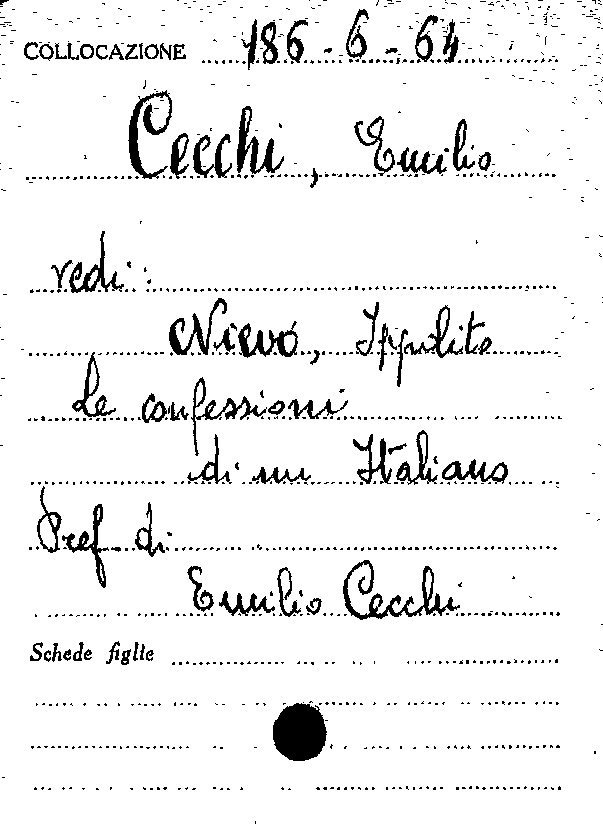 COLLOCAZIONE 186-6-64
Cecchi, Emilio
vedi:
Nievo, Ippolito
Le confessioni
di un Italiano
Pref. di
Emilio Cecchi
Schede figlie